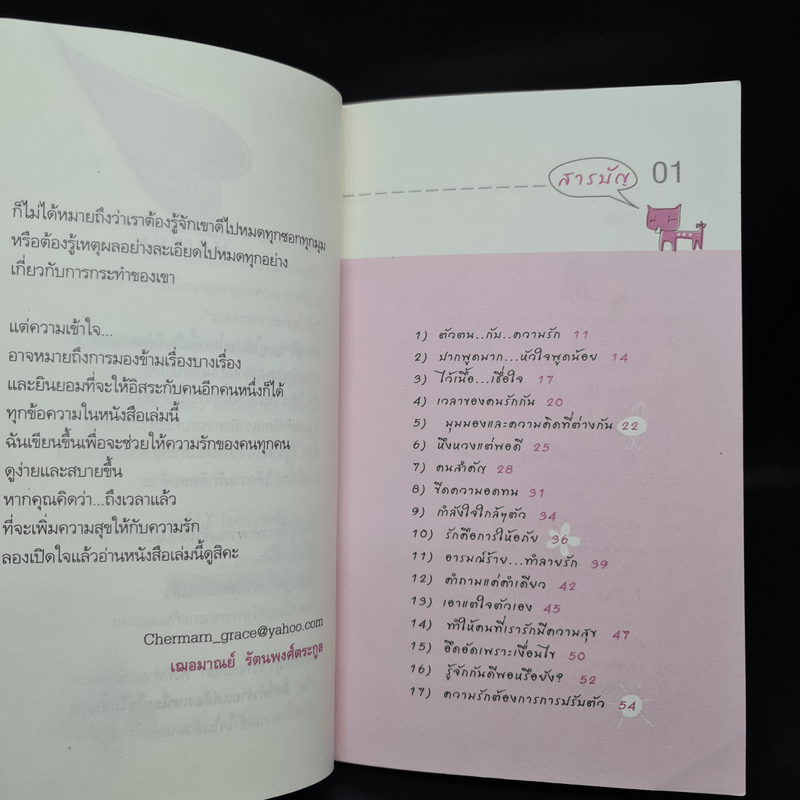 ก็ไม่ได้หมายถึงว่าเราต้องรู้จักเขาดีไปหมดทุกซอกทุกมุม
หรือต้องรู้เหตุผลอย่างละเอียดไปหมดทุกอย่าง
เกี่ยวกับการกระทำของเขา
แต่ความเข้าใจ...
อาจหมายถึงการมองข้ามเรื่องบางเรื่อง
และยินยอมที่จะให้อิสระกับคนอีกคนหนึ่งก็ได้
ทุกข้อความในหนังสือเล่มนี้
ฉันเขียนขึ้นเพื่อจะช่วยให้ความรักของคนทุกคน
ดูง่ายและสบายขึ้น
หากคุณคิดว่า...ถึงเวลาแล้ว
ที่จะเพิ่มความสุขให้กับความรัก
ลองเปิดใจแล้วอ่านหนังสือเล่มนี้ดูสิคะ
Chermarn_grace@yahoo.com
เฌอมาณย์ รัตนพงศ์ตระกูล
สารบัญ 01
1) ตัวตน..กับ..ความรัก 11
2) ปากพูดมาก...หัวใจพูดน้อย 14
3) ไว้เนื้อ...เชื่อใจ 17
4) เวลาของคนรักกัน 20
5) มุมมองและความคิดที่ต่างกัน 22
6) หึงหวงแต่พอดี 25
7) คนสำคัญ 28
8) ขีดความอดทน 31
9) กำลังใจใกล้ๆตัว 34
10) รักคือการให้อภัย 36
11) อารมณ์ร้าย...ทำลายรัก 39
12) คำถามแค่คำเดียว 42
13) เอาแต่ใจตัวเอง 45
14) ทำให้คนที่เรารักมีความสุข 47
15) อึดอัดเพราะเงื่อนไข 50
16) รู้จักกันดีพอหรือยัง? 52
17) ความรักต้องการการปรับตัว 54